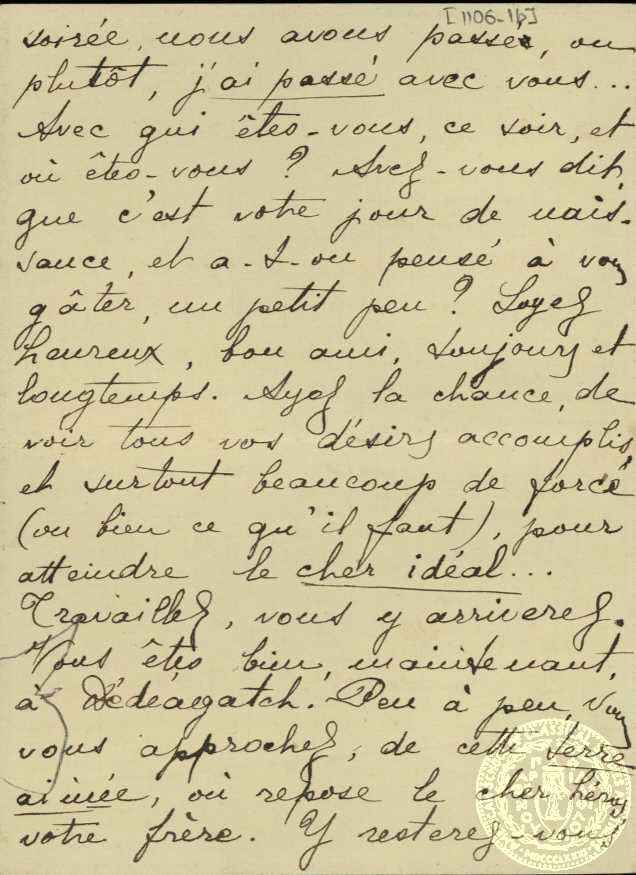 [1106-1b]
soirée, nous avons passée, ou
plutôt, j'ai passé avec vous...
Avec qui êtes-vous, ce soir, et
où êtes-vous ? Avez-vous dit,
que c'est votre jour de nais-
sance, et a-t-on pensé à vous
gâter, un petit peu ? Soyez
heureux, bon ami, toujours et
longtemps. Ayez la chance, de
voir tous vos désirs accomplis,
et surtout beaucoup de force
(ou bien ce qu'il faut), pour
atteindre le cher idéal...
Travaillez, vous y arriverez.
Vous êtes bien, maintenant,
à Dédéagatch. Peu à peu, vous
vous approchez, de cette terre
aimée, où repose le cher héros
votre frère. Y resterez-vous